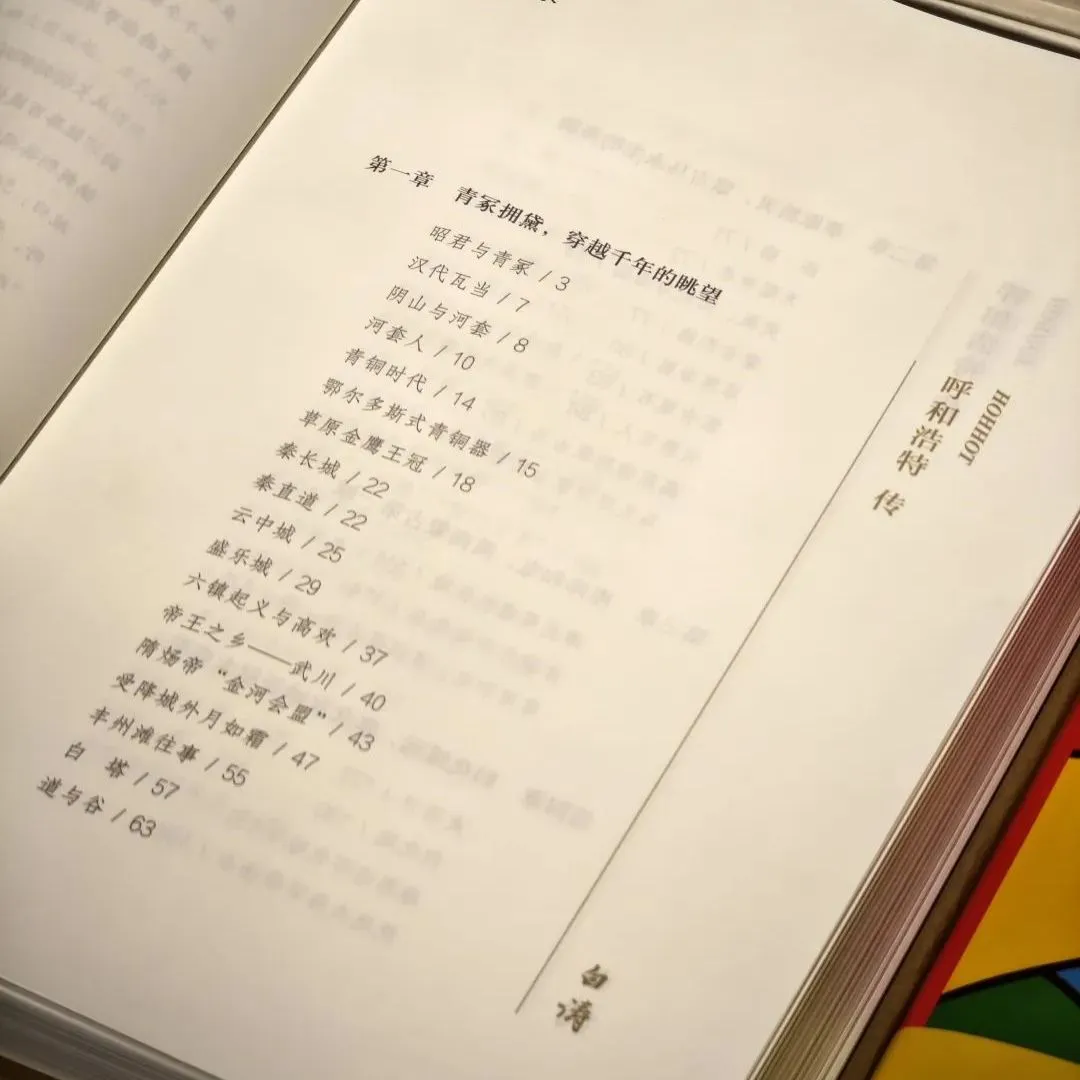 第一章 青冢拥黛，穿越千年的眺望
昭君与青冢 / 3
汉代瓦当 / 7
阴山与河套 / 8
河套人 / 10
青铜时代 / 14
鄂尔多斯式青铜器 / 15
草原金鹰王冠 / 18
秦长城 / 22
秦直道 / 22
云中城 / 25
盛乐城 / 29
六镇起义与高欢 / 37
帝王之乡——武川 / 40
隋炀帝“金河会盟” / 43
受降城外月如霜 / 47
丰州滩往事 / 55
白 塔 / 57
道与谷 / 63
HOHHOT
呼和浩特 传
白涛